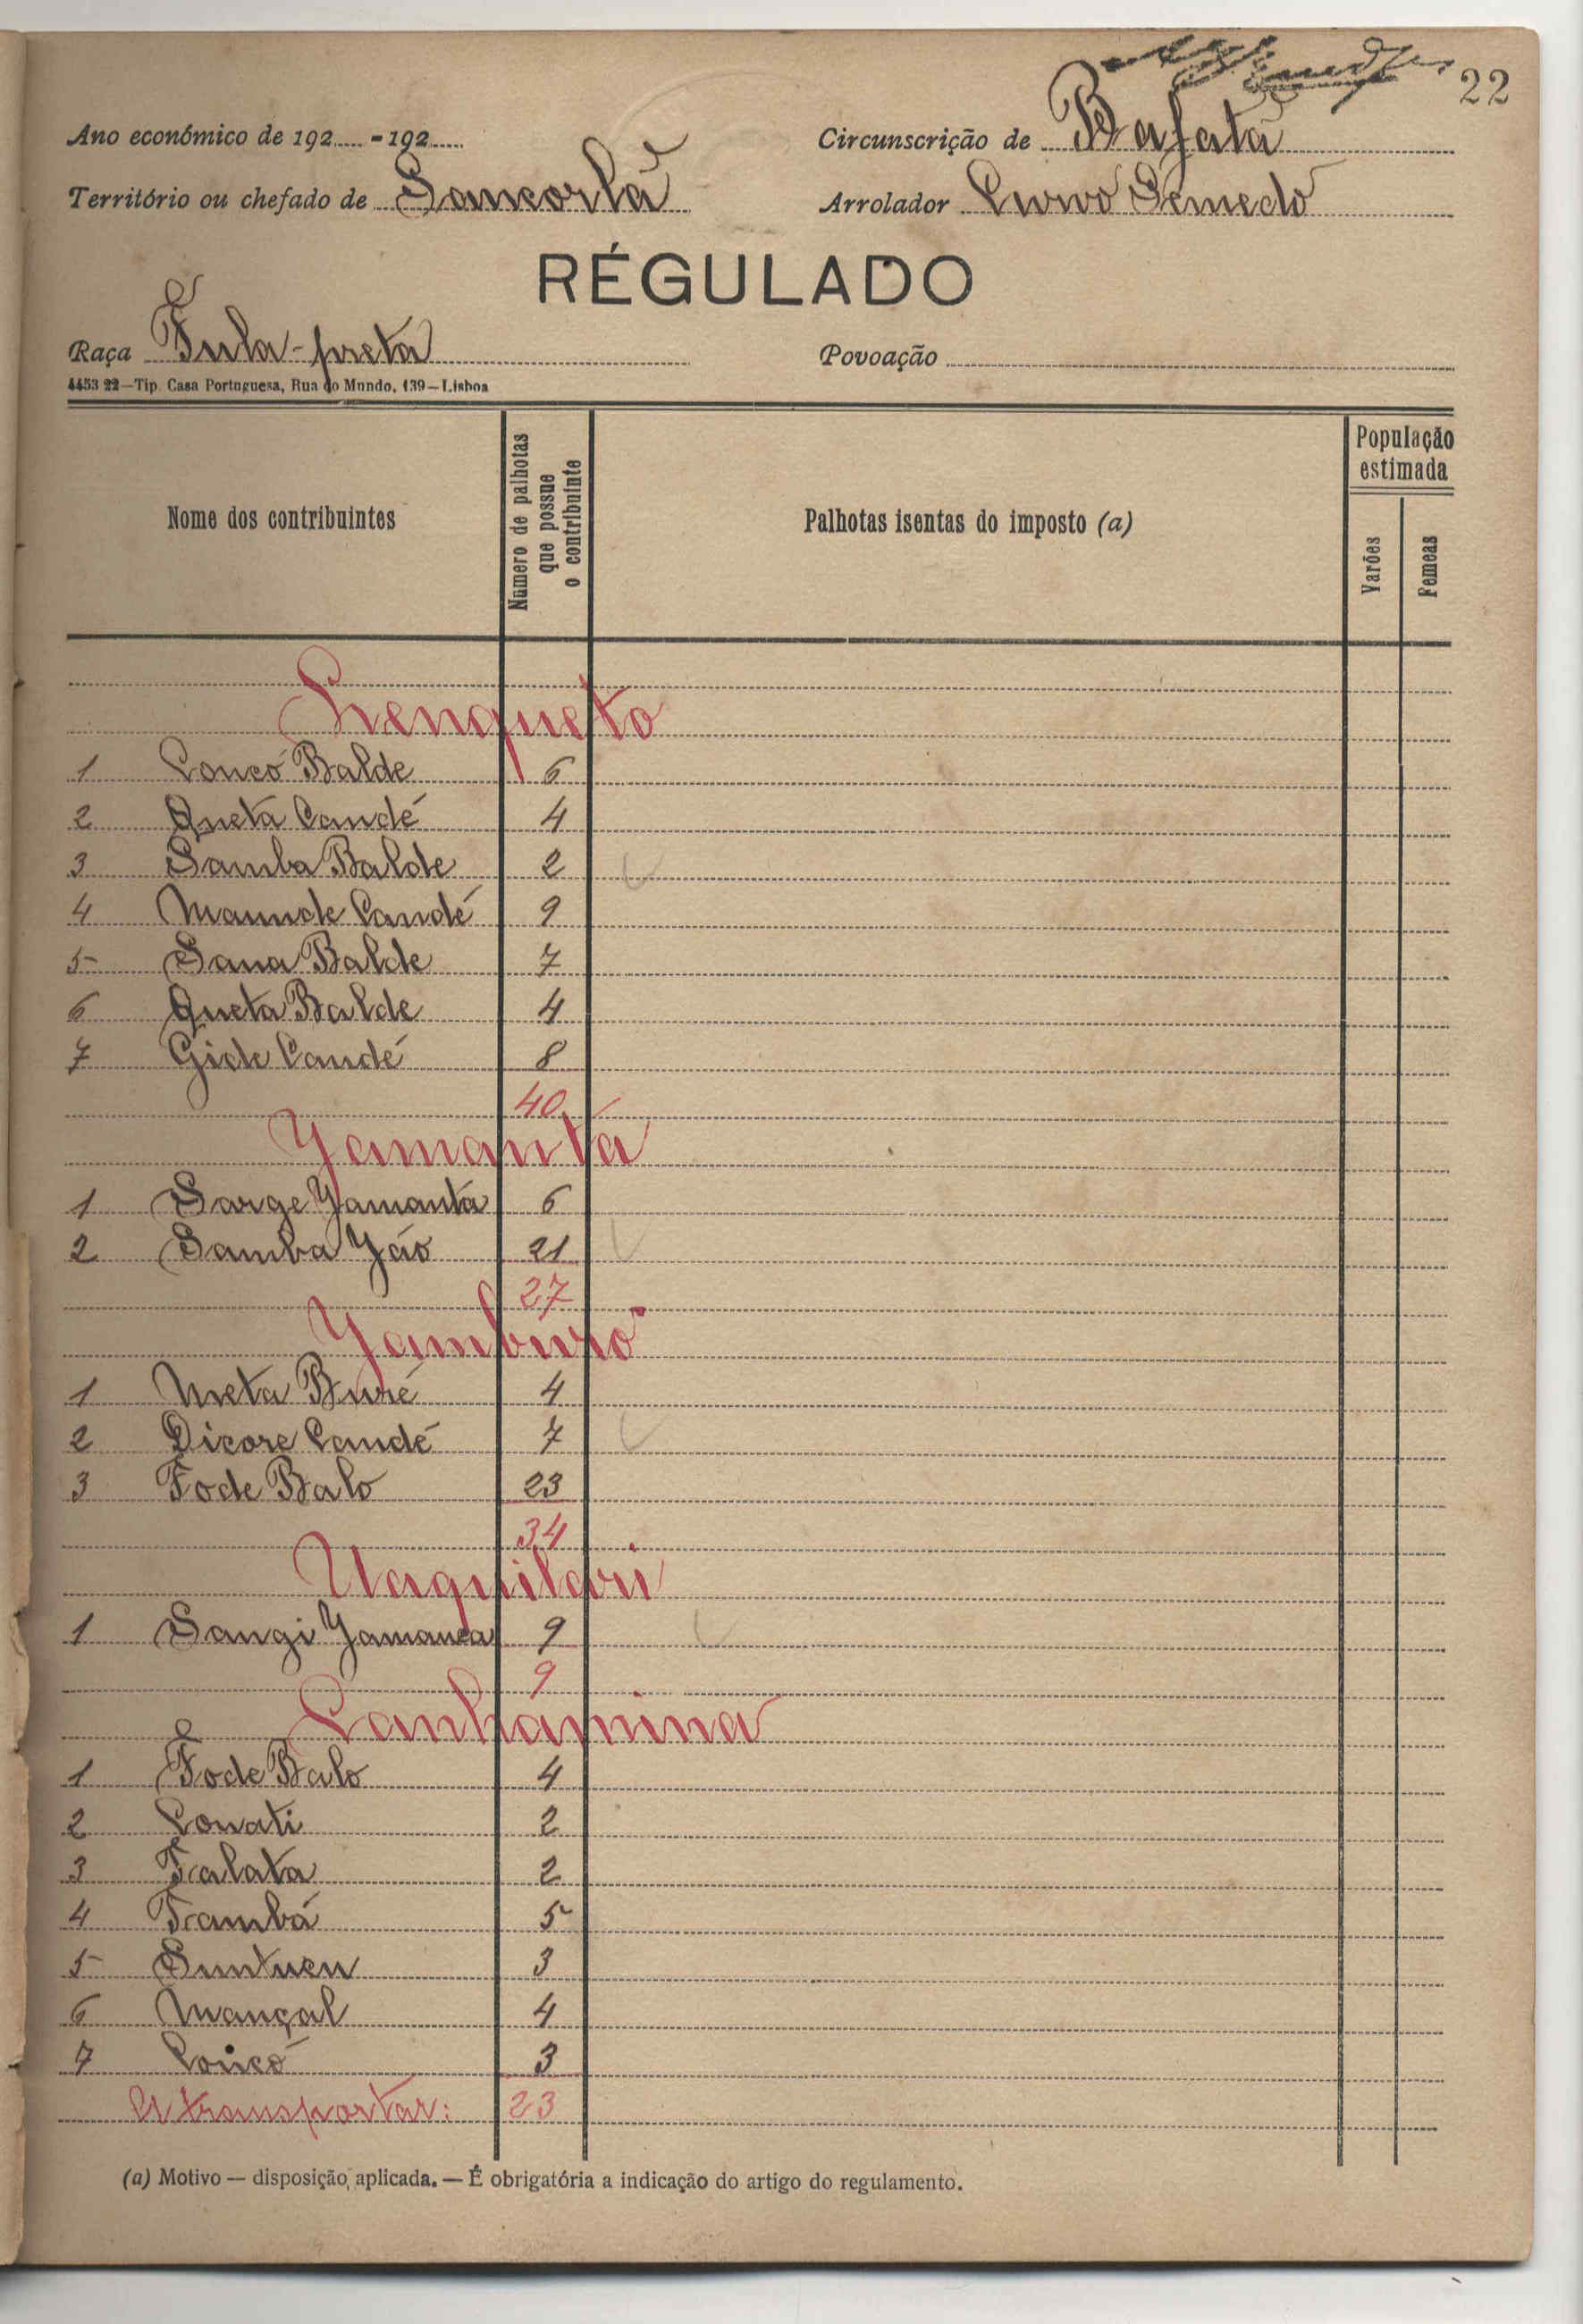 22
Ano económico de 192..... - 192..... Circunscrição de Bafatá
Território ou chefado de Sancorlá Arrolador Purvo Semedo
RÉGULADO
Raça Fula-preta Povoação
4453 22—Tip. Casa Portuguesa, Rua do Mundo, 139—Lisboa
Nome dos contribuintes Número de palhotas que possue o contribuinte Palhotas isentas do imposto (a) População estimada Varões Femeas
Lenqueto
1 Concó Balde 6
2 Queta Candé 4
3 Samba Balde 2
4 Maunde Candé 9
5 Sana Balde 7
6 Queta Balde 4
7 Gide Candé 8
40
Yamanta
1 Sarge Yamanta 6
2 Samba Yáo 21
27
Yamburo
1 Meta Buré 4
2 Dicore Candé 7
3 Fode Balo 23
34
Uaquilari
1 Sangi Yamanca 9
9
Canhámina
1 Fode Balo 4
2 Conati 2
3 Talata 2
4 Tambá 5
5 Suntuen 3
6 Mançal 4
7 Concó 3
A transportar: 23
(a) Motivo — disposição aplicada. — É obrigatória a indicação do artigo do regulamento.